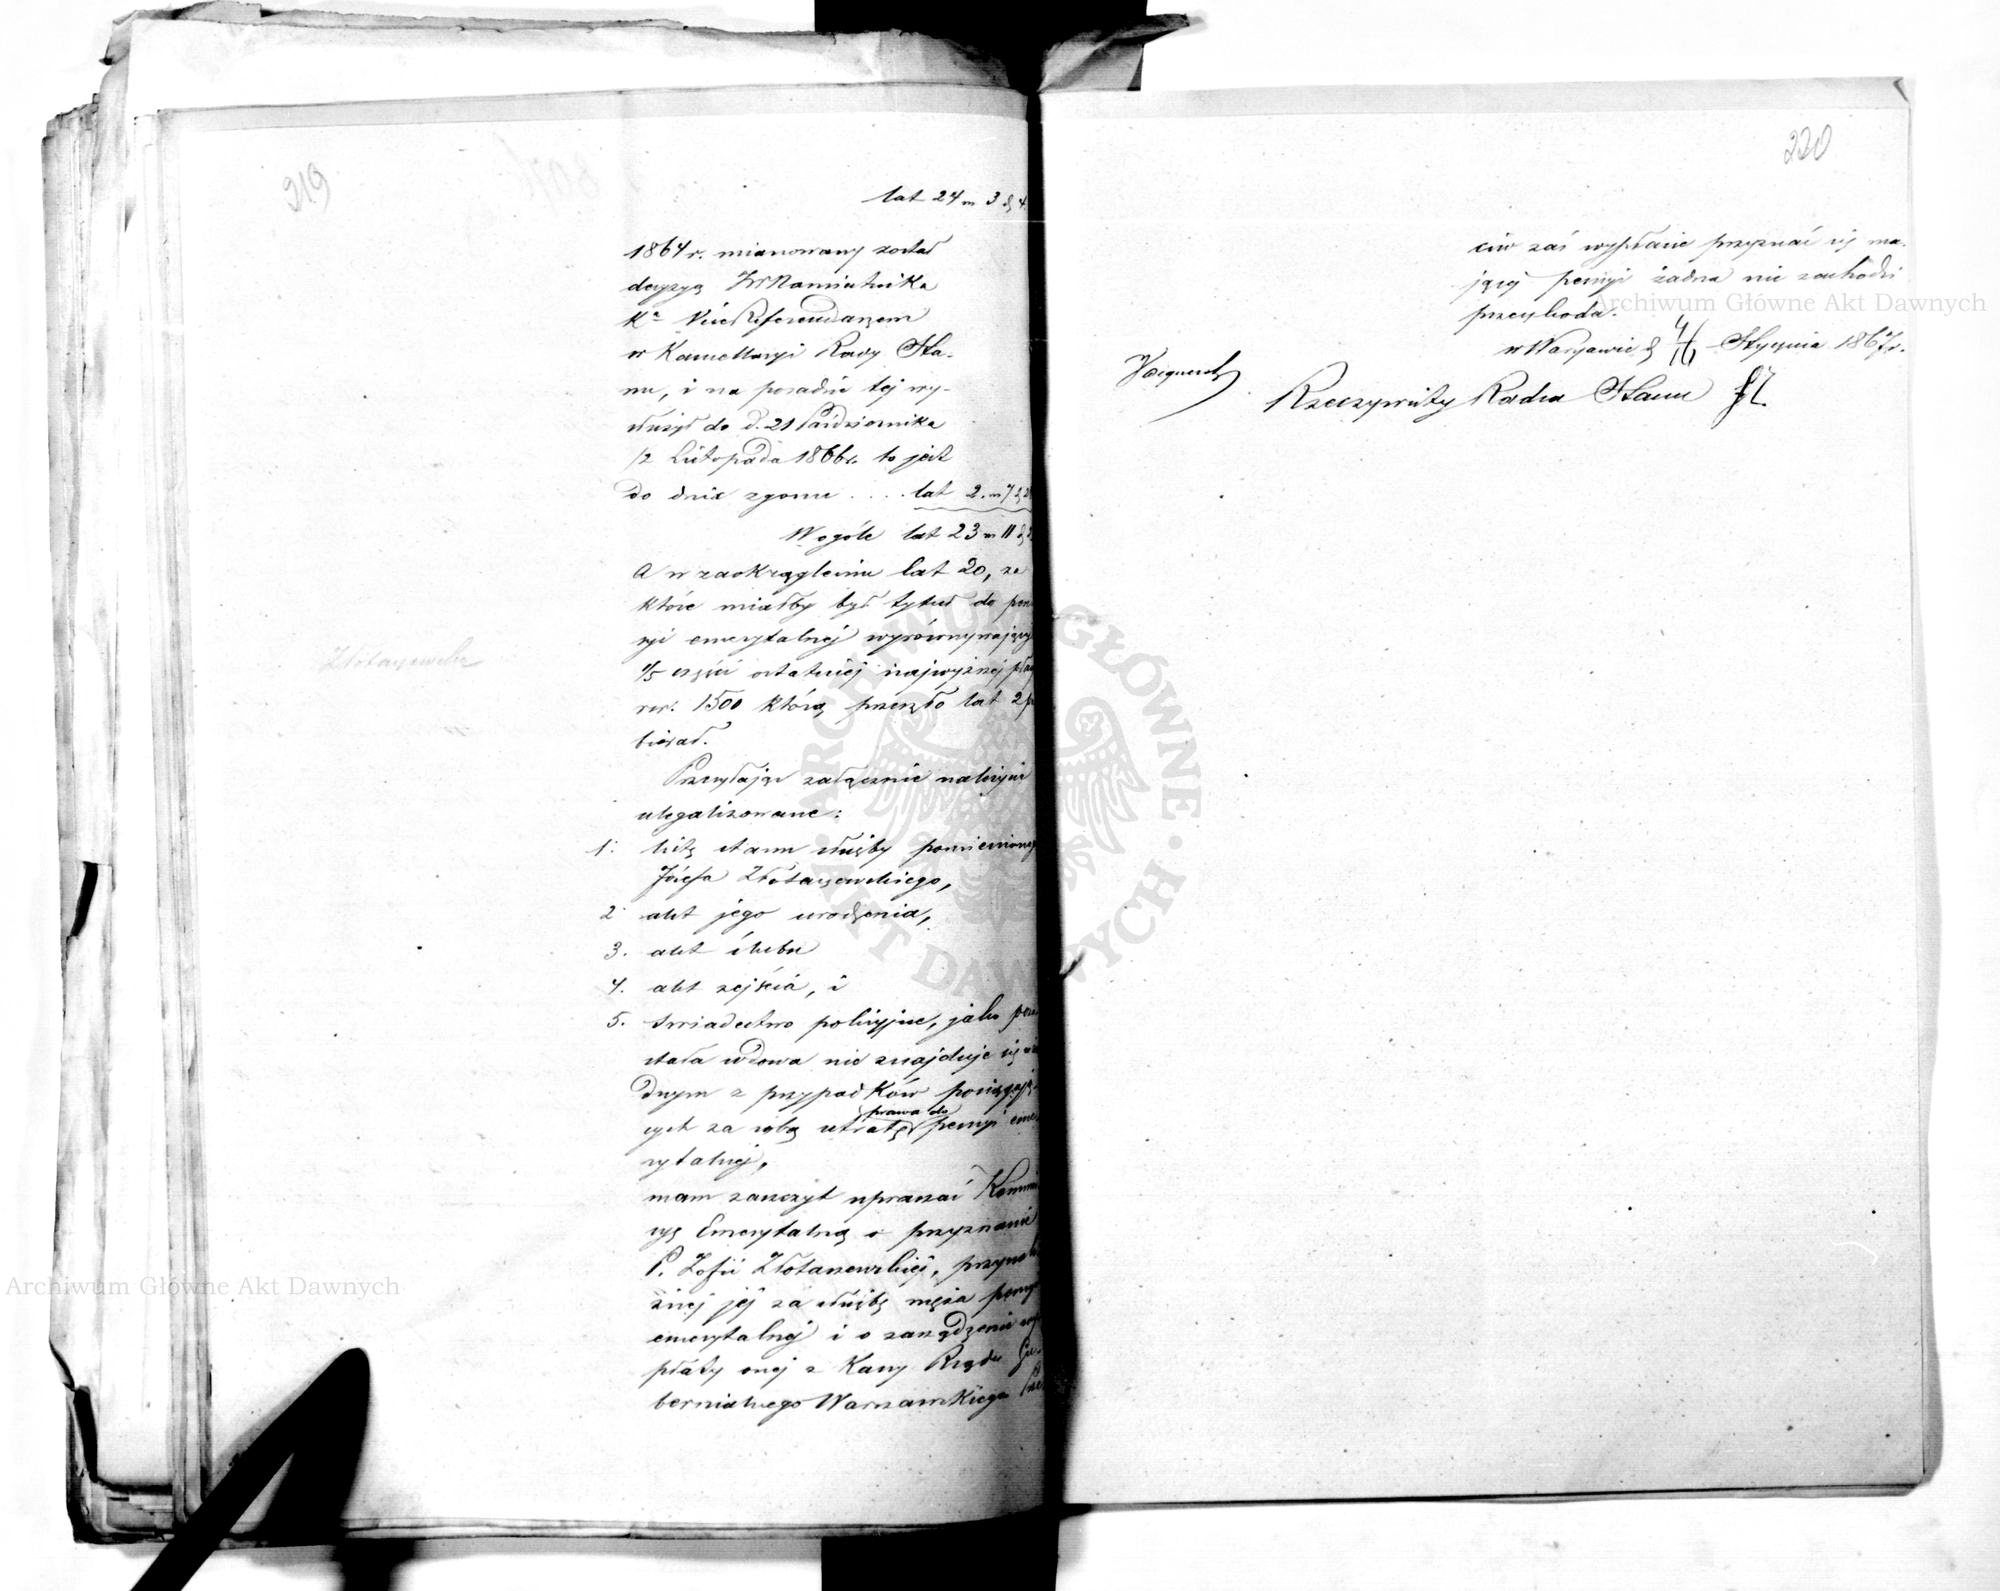 219
lat 24 m 3 d 4
1864 r. mianowany został
decyzyą JW Namiestnika
Kr Vice Referendarzem
w Kancellaryi Rady Sta-
nu, i na posadzie tej wy-
służył do d. 21 Października
/2 Listopada 1866 r. to jest
do dnia zgonu .... lat 2. m 7 d
W ogóle lat 23 m 11 d
A w zaokrągleniu lat 20, za
które miałby był tytuł do pen
syi emerytalnej wyrównywającej
części ostatniej najwyższej płac
rsr. 1500 którą przeszło lat 2 p
bierał.
Przesyłając załącznie należycie
ulegalizowane:
1. listę stanu służby pomienioneg
Józefa Złotaszewskiego,
2. akt jego urodzenia,
3. akt ślubu
4. akt zejścia, i
5. świadectwo policyjne, jako pozo
stała wdowa nie znajduje się w
dnym z przypadków pociągają
cych za sobą utratę prawa do pensyi eme
rytalnej,
mam zaszczyt upraszać Kommis
syę Emerytalną o przyznanie
P. Zofii Złotaszewskiej, przynale
żnej jej za służbę męża pensyi
emerytalnej i o zarządzenie wy
płaty onej z Kassy Rządu Gu-
bernialnego Warszawskiego
Złotaszewska
220
ciw zaś wypłacie przyznać się ma-
jącej pensyi żadna nie zachodzi
przeszkoda.
w Warszawie d 4/16 Stycznia 1867 r.
Rzeczywisty Radca Stanu
Archiwum Główne Akt Dawnych
Archiwum Główne Akt Dawnych
ARCHIWUM GŁÓWNE · AKT DAWNYCH ·